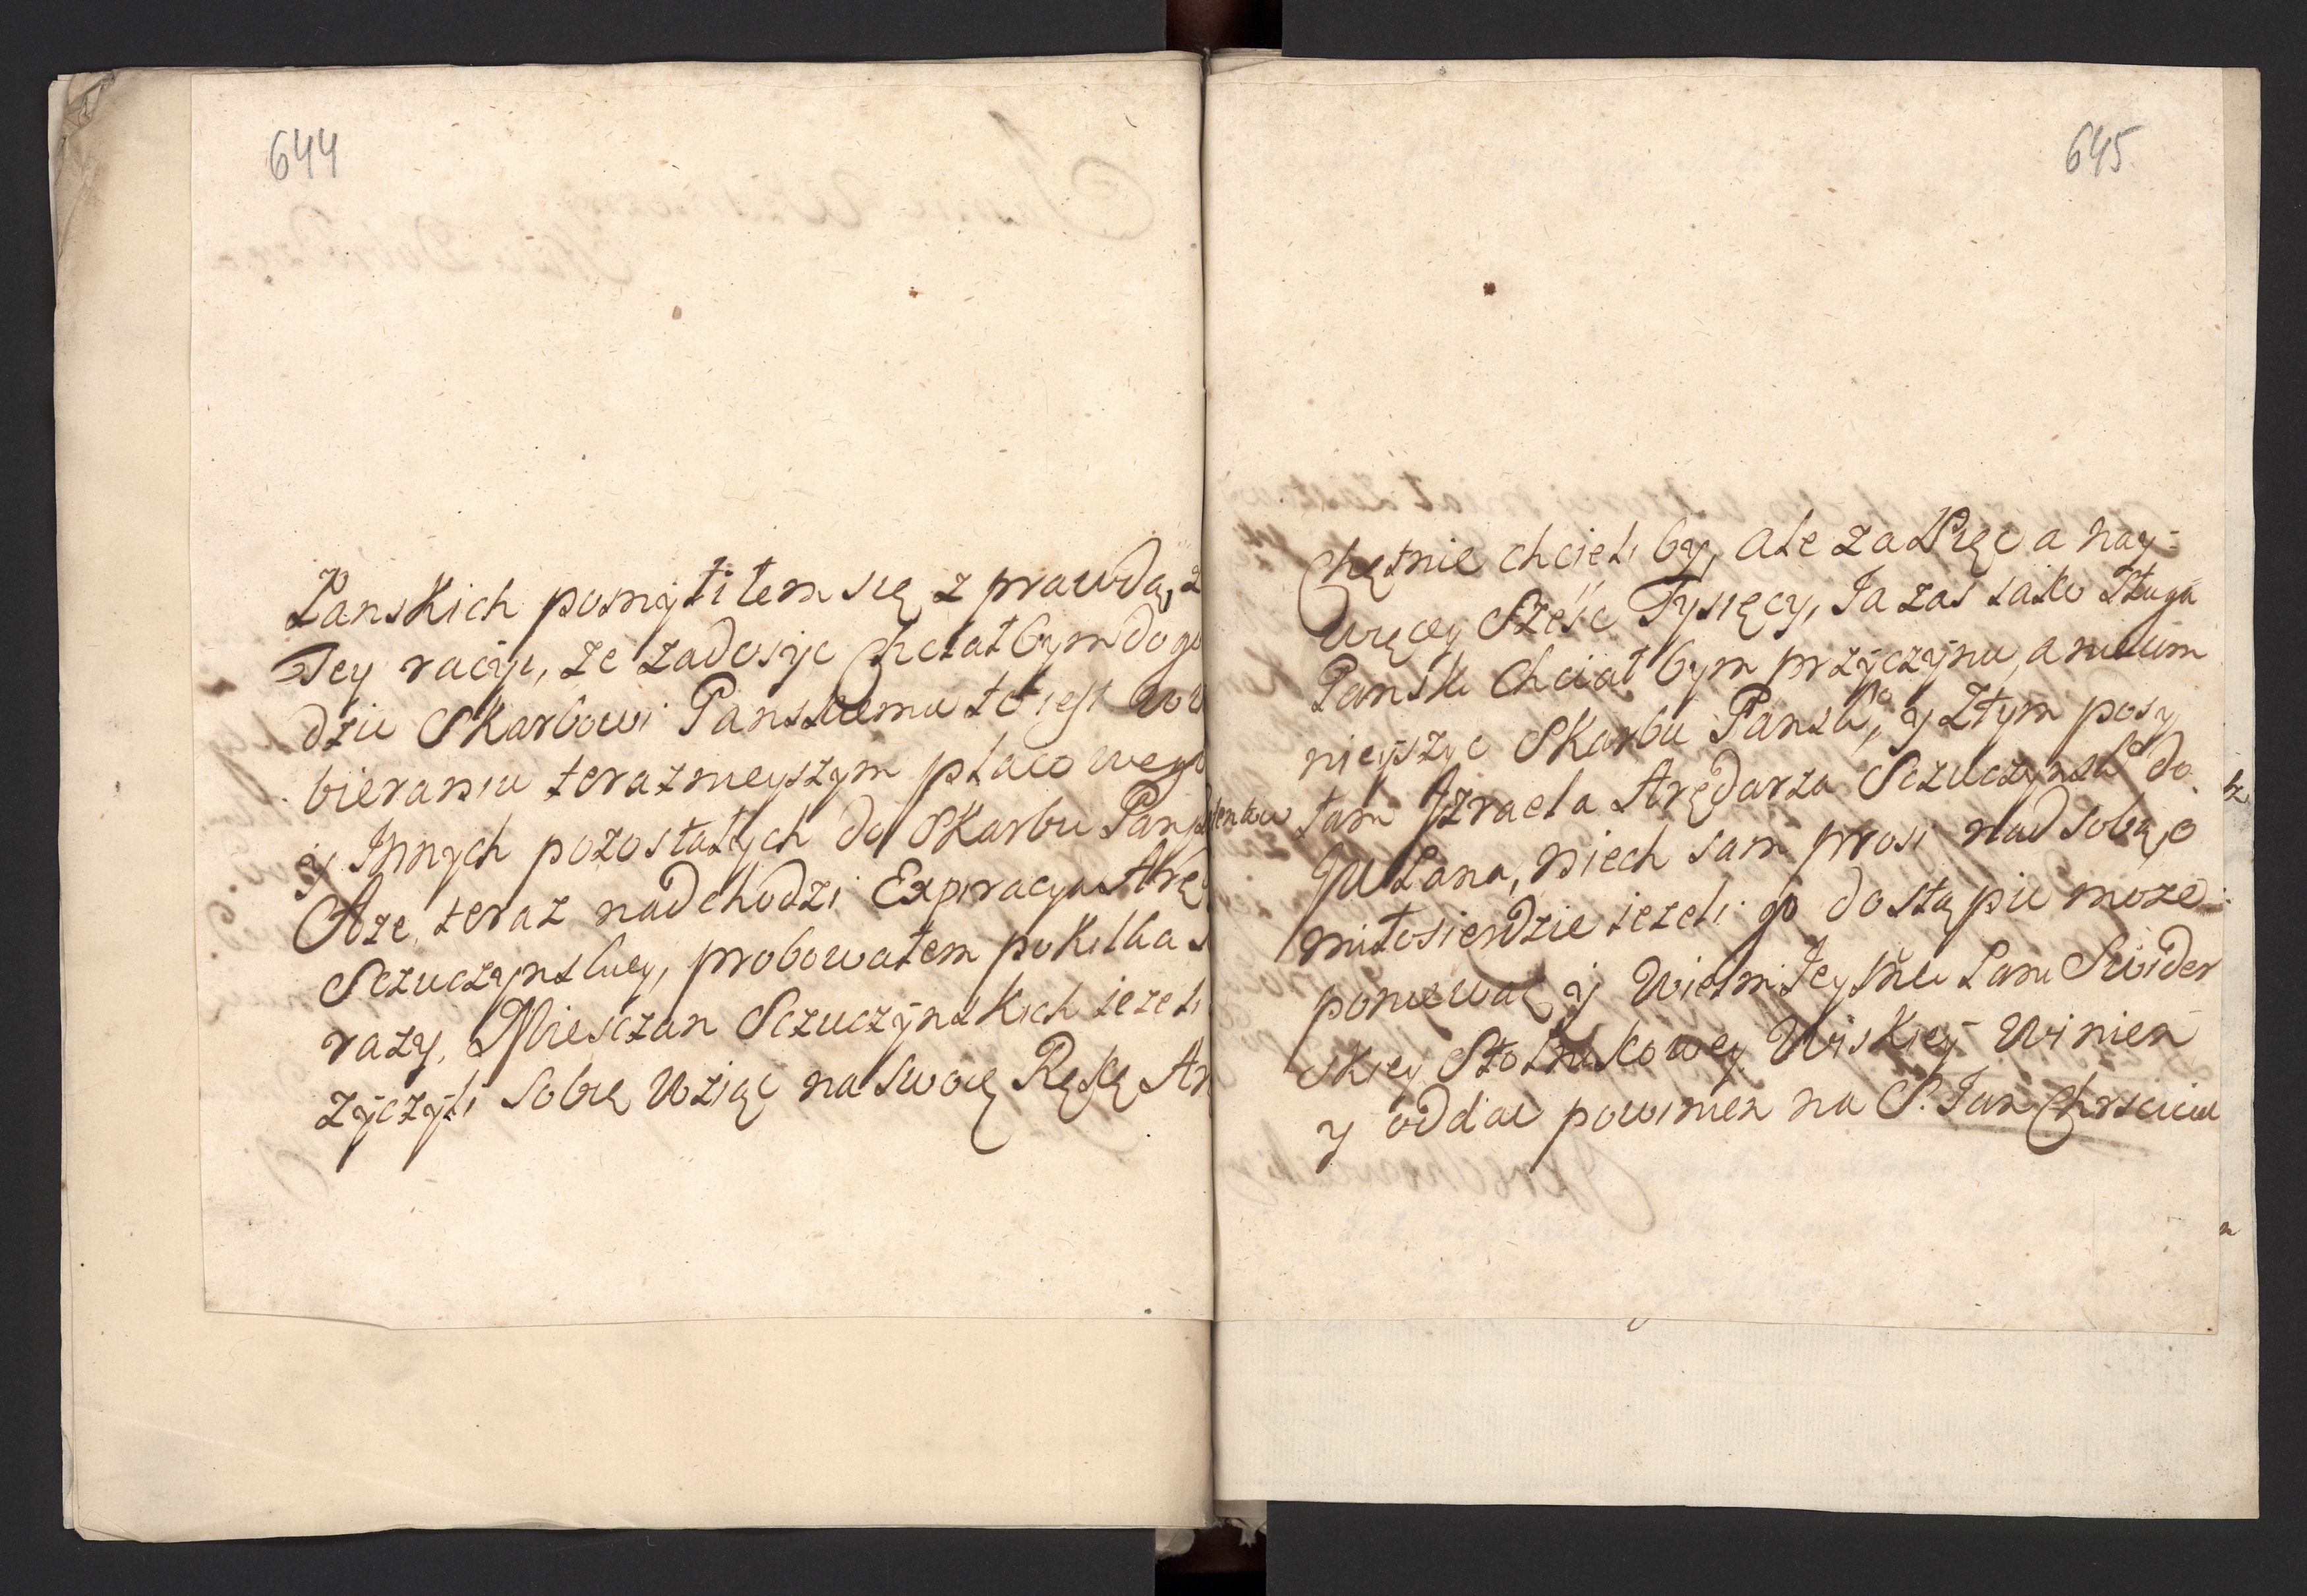 644
Panskich pomytilem się z prawdą,
Tey racyi, ze zadosyc chciałbym dogo
dzic Skarbowi Panskiemu to iest w
bieraniu terazmeyszym płacowego
y Innych pozostałych do Skarbu Pan
Aze teraz nadchodzi Expiracya Arę
Sczuczynskiey, probowałem pokilka
razy, Miesczan Sczuczynskich iezeli
zyczyli sobie Wziąć na swoię Rękę Ar
645
Chętnie chcieli by, ale za Pięc a nay-
więcy Sześc Tysięcy, Ja zas iako Sługa
Panski Chciał bym przyczynic, a nie um
nieyszyc Skarbu Pansko, y Ztym posy
łam Izraela Arędarza Sczuczynsko do
JW Pana, niech sam prosi nad sobą, o
miłosierdzie iezeli go dostąpic moze
poniewaz y Wielm Jeymci Pani Swider
skiey Stolnikowey Wiskiey Winien
y oddac powinien na S. Jan Chrsciciel